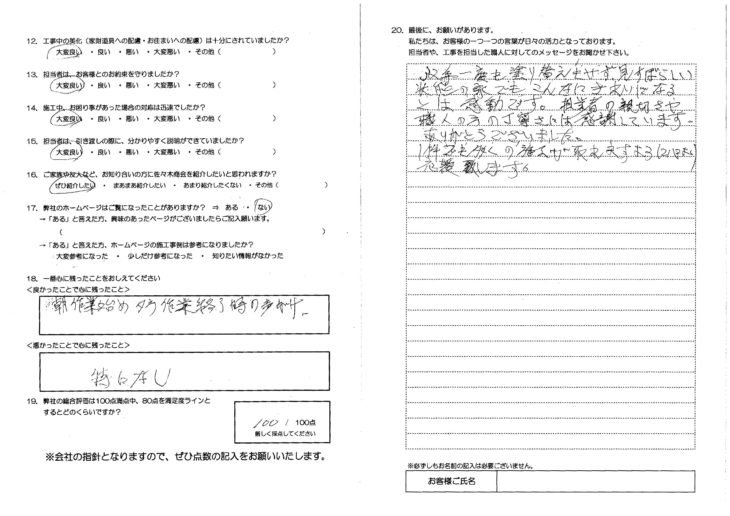 12. 工事中の美化(家財道具への配慮・お住まいへの配慮)は十分にされていましたか?
大変良い ・ 良い ・ 悪い ・ 大変悪い ・ その他 ( )
13. 担当者は、お客様とのお約束を守りましたか?
大変良い ・ 良い ・ 悪い ・ 大変悪い ・ その他 ( )
14. 施工中、お困り事があった場合の対応は迅速でしたか?
大変良い ・ 良い ・ 悪い ・ 大変悪い ・ その他 ( )
15. 担当者は、引き渡しの際に、分かりやすく説明ができていましたか?
大変良い ・ 良い ・ 悪い ・ 大変悪い ・ その他 ( )
16. ご家族や友人など、お知り合いの方に佐々木商会を紹介したいと思われますか?
ぜひ紹介したい ・ まあまあ紹介したい ・ あまり紹介したくない ・ その他 ( )
17. 弊社のホームページはご覧になったことがありますか? ⇒ ある ・ ない
→「ある」と答えた方、興味のあったページがございましたらご記入願います。
( )
→「ある」と答えた方、ホームページの施工事例は参考になりましたか?
大変参考になった ・ 少しだけ参考になった ・ 知りたい情報がなかった
18. 一番心に残ったことをおしえてください
<良かったことで心に残ったこと>
朝作業始め 夕方作業終了時の声かけ。
<悪かったことで心に残ったこと>
特になし
19. 弊社の総合評価は100点満点中、80点を満足度ラインと
するとどのくらいですか?
100 / 100点
厳しく採点してください
※会社の指針となりますので、ぜひ点数の記入をお願いいたします。
20. 最後に、お願いがあります。
私たちは、お客様の一つ一つの言葉が日々の活力となっております。
担当者や、工事を担当した職人に対してのメッセージをお聞かせ下さい。
一度も塗り替えもせず見すぼらしい
状態の家でもこんなにきれいになる
とは感動です。担当者の親切さや
職人の方の丁寧さには感謝しています。
ありがとうございました。
1件でも多くの 取れますよう
応援致します。
※必ずしもお名前の記入は必要ございません。
お客様ご氏名